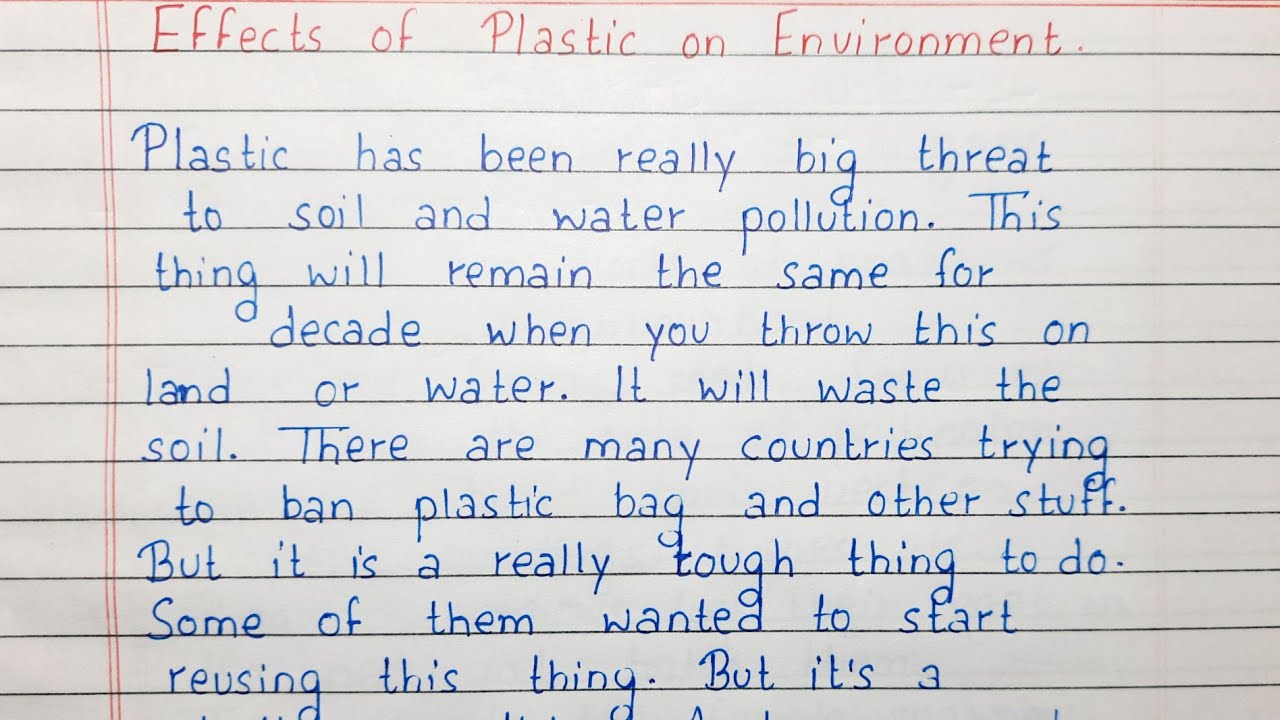 Effects of Plastic on Environment.
Plastic has been really big threat
to soil and water pollution. This
thing will remain the same for
decade when you throw this on
land or water. It will waste the
soil. There are many countries trying
to ban plastic bag and other stuff.
But it is a really tough thing to do.
Some of them wanted to start
reusing this thing. But it's a